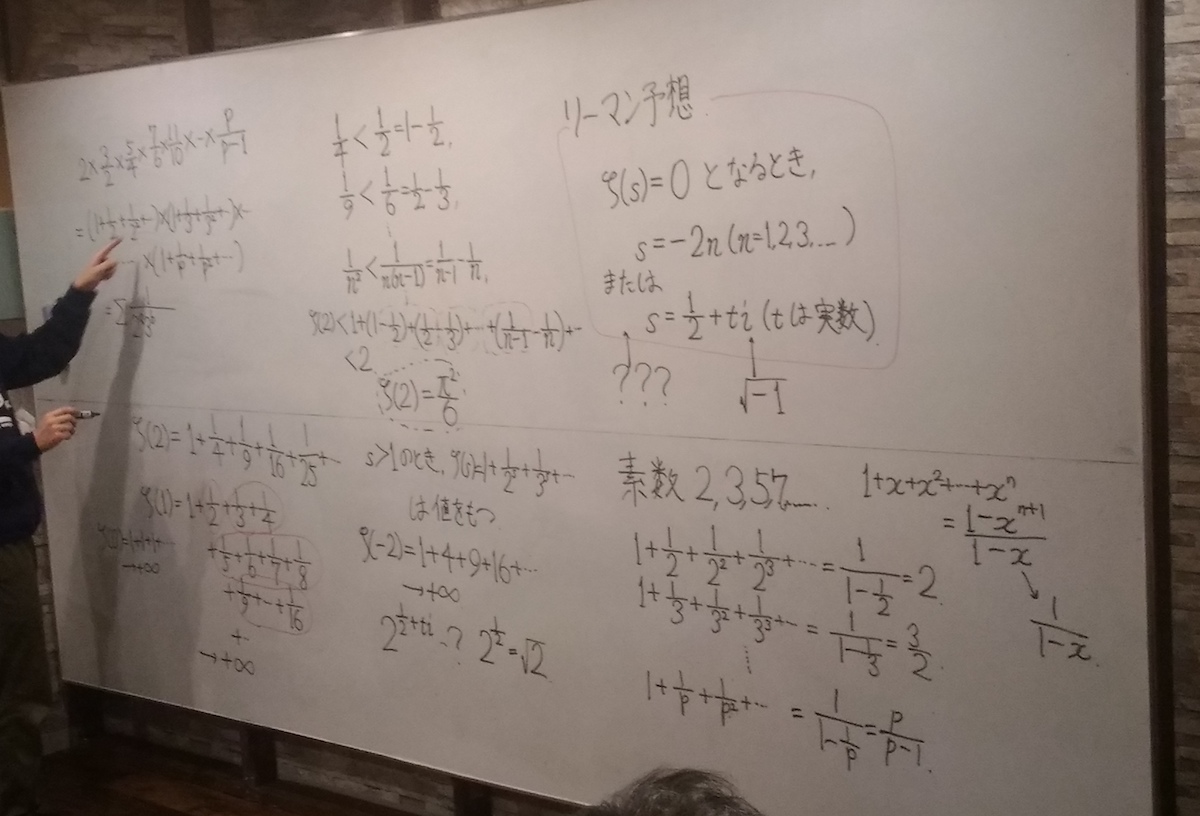 2×3/2×5/4×7/6×11/10×…×p/(p-1)
=(1+1/2+1/2²+…)×(1+1/3+1/3²+…)×…
…×(1+1/p+1/p²+…)
1/4<1/2=1-1/2,
1/9<1/6=1/2-1/3,
⋮
1/n²<1/n(n-1)=1/(n-1)-1/n,
⋮
ζ(2)<1+(1-1/2)+(1/2-1/3)+…+(1/(n-1)-1/n)+…
<2
ζ(2)=π²/6
リーマン予想
ζ(s)=0となるとき,
s=-2n(n=1,2,3,…)
または
s=1/2+ti(tは実数)
???
√-1
ζ(2)=1+1/4+1/9+1/16+1/25+…
ζ(1)=1+1/2+1/3+1/4
+1/5+1/6+1/7+1/8
+1/9+…+1/16
+…
→+∞
ζ(0)=1+1+1+…
→+∞
s>1のとき,ζ(s)=1+1/2ˢ+1/3ˢ+…
は値をもつ
ζ(-2)=1+4+9+16+…
→+∞
2^(1/2+ti) …? 2^(1/2)=√2
素数2,3,5,7,….
1+1/2+1/2²+1/2³+…=1/(1-1/2)=2
1+1/3+1/3²+1/3³+…=1/(1-1/3)=3/2
⋮
1+1/p+1/p²+…=1/(1-1/p)=p/(p-1).
1+x+x²+…+xⁿ
=(1-xⁿ⁺¹)/(1-x)
1/(1-x).